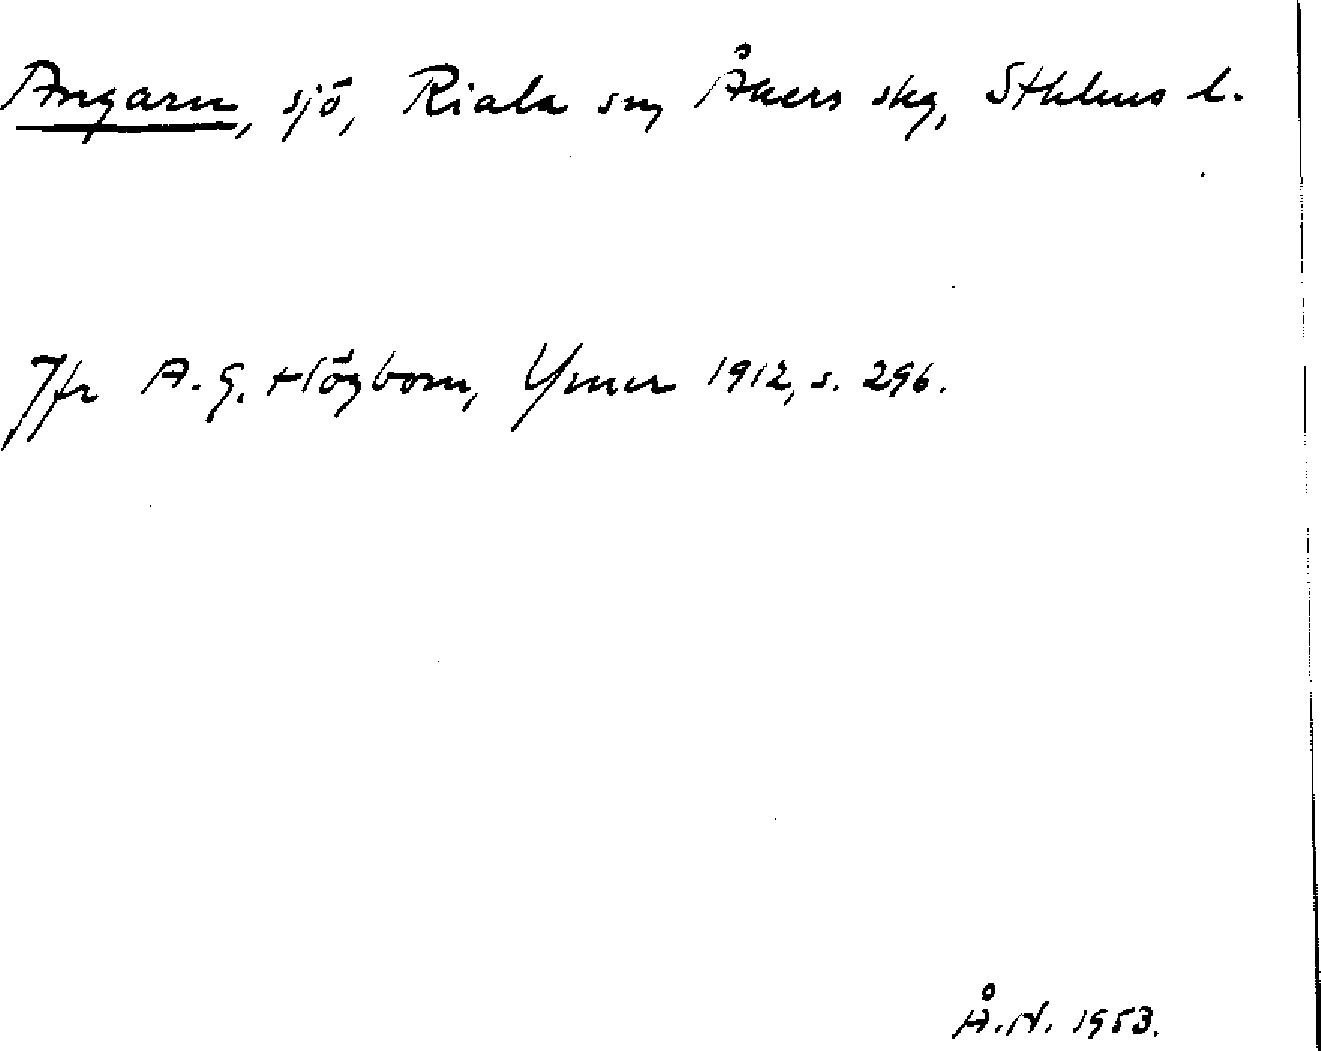 Angarn, sjö, Riala sn, Åkers skg, Sthlms l.
Jfr A. G. Högbom, Ymer 1912, s. 296.
Å. N. 1953.